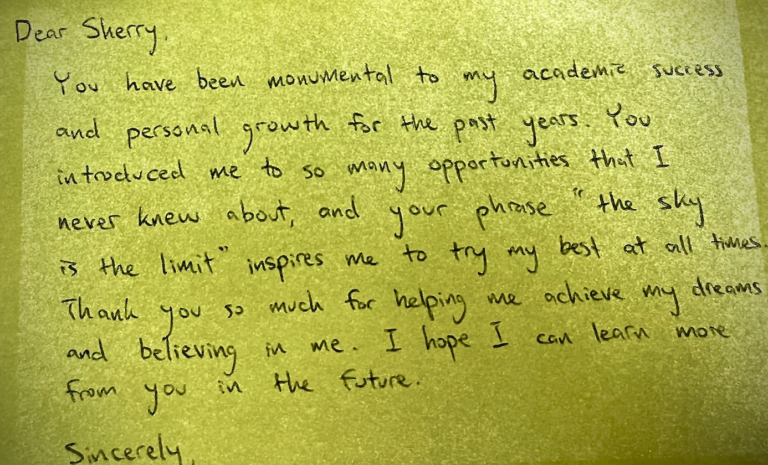 Dear Sherry,
You have been monumental to my academic success
and personal growth for the past years. You
introduced me to so many opportunities that I
never knew about, and your phrase "the sky
is the limit" inspires me to try my best at all times.
Thank you so much for helping me achieve my dreams
and believing in me. I hope I can learn more
from you in the future.
Sincerely,